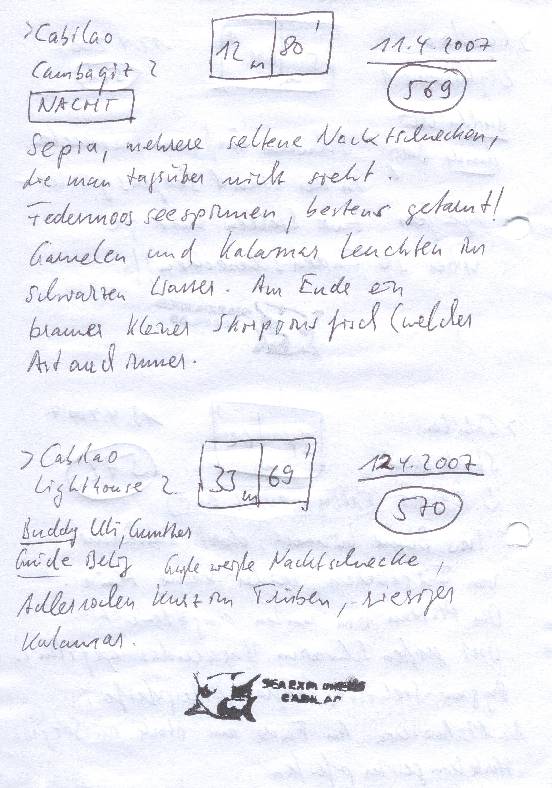 >Cabilao
12 m 80'
11.4.2007
Cambaquiz 2
569
NACHT
Sepia, mehrere seltene Nacktschnecken,
die man tagsüber nicht sieht.
Federmoosseespinnen, bestens getarnt!
Garnelen und Kalamar leuchten im
schwarzen Wasser. Am Ende ein
brauner kleiner Skorpionsfisch (welcher
Art auch immer.
>Cabilao
33 m 69'
12.4.2007
Lighthouse 2
570
Buddy Uli, Gunther
Guide Große weiße Nacktschnecke,
Adlerrochen kurz im Trüben, riesiger
Kalamar.
SEA EXPLORERS
CABILAO